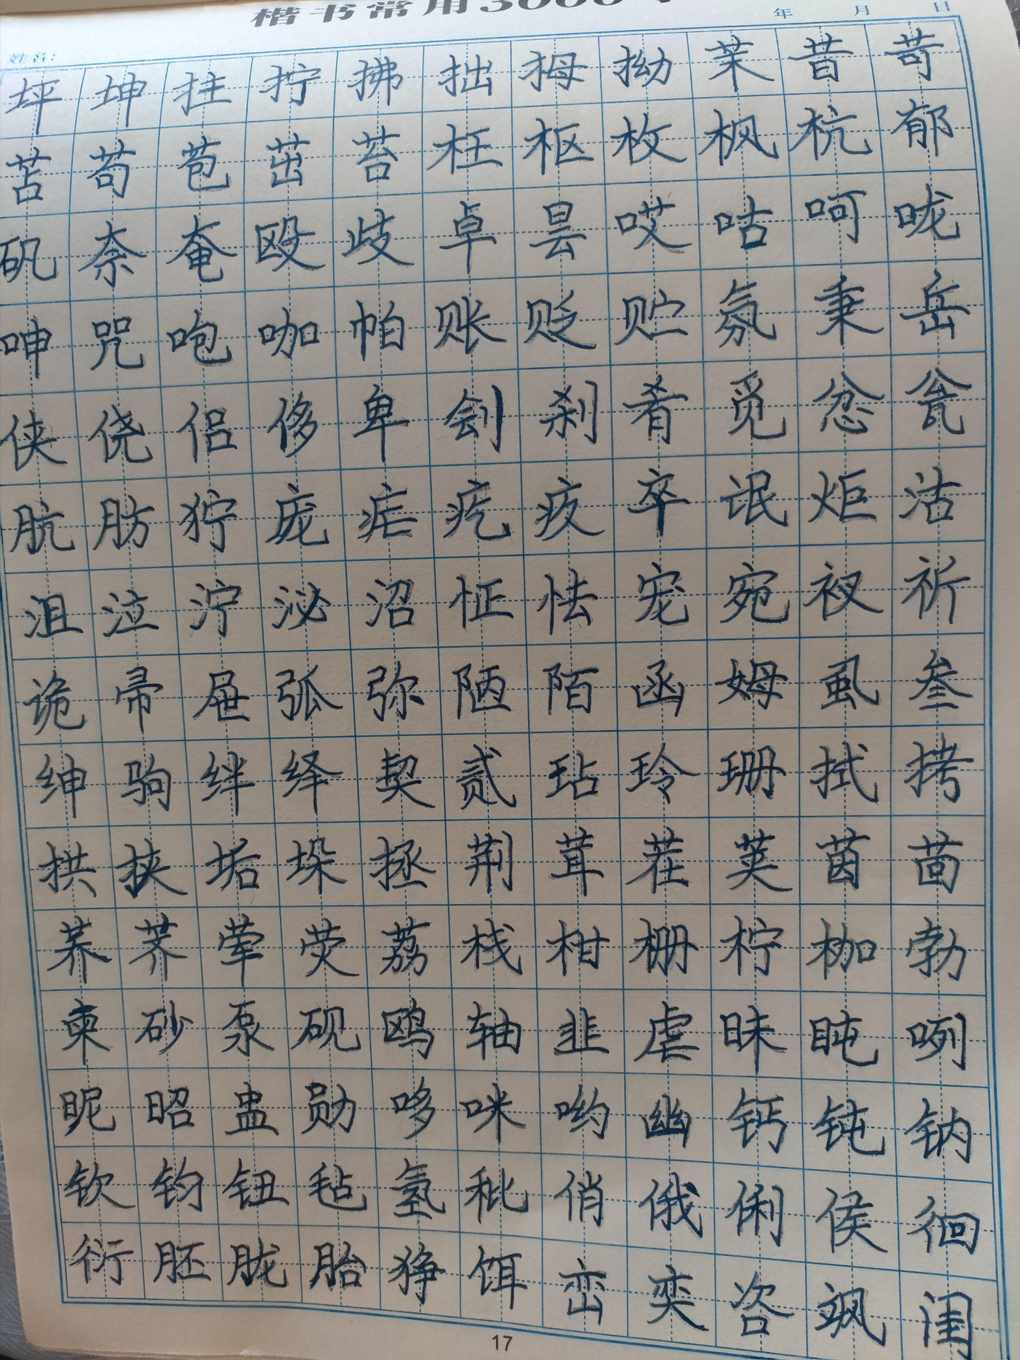 楷书常用3000
姓名: 年 月 日
坪坤拄拧拂拙拇拗茉昔苛
苫苟苞茁苔枉枢枚枫杭郁
矾奈奄殴歧卓昙哎咕呵咙
呻咒咆咖帕账贬贮氛秉岳
侠侥侣侈卑刽刹肴觅忿瓮
肮肪狞庞疟疙疚卒氓炬沽
沮泣泞泌沼怔怯宠宛衩祈
诡帚屉弧弥陋陌函姆虱叁
绅驹绊绎契贰玷玲珊拭拷
拱挟垢垛拯荆茸茬荚茵茴
荞荠荤荧荔栈柑栅柠枷勃
柬砂泵砚鸥轴韭虐昧盹咧
昵昭盅勋哆咪哟幽钙钝钠
钦钧钮毡氢秕俏俄俐侯徊
衍胚胧胎狰饵峦奕咨飒闺
17